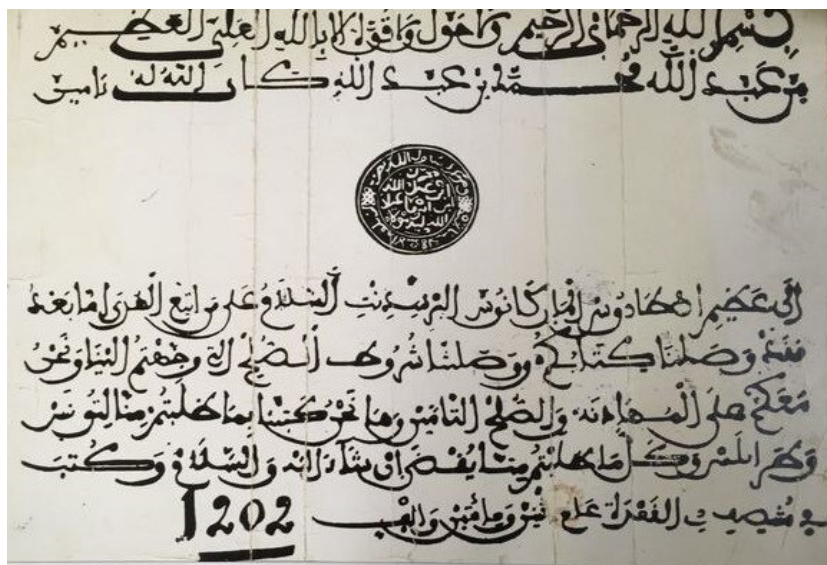 بسم الله الرحمان الرحيم ولا حول ولا قوة الا بالله العلي العظيم
من عبد الله محمد بن عبد الله كان الله له ءامين
محمد
ابن عبد الله
الله وليه ومولاه
الى عظيم اصطادوس الماركانوس البرسدنت السلام على من اتبع الهدى اما بعد
فقد وصلنا كتابكم ووصلتنا شروط الصلح التي وجهتم الينا ونحن
معكم على المهادنه والصلح التامين وها نحن كتبنا بما طلبتم منا لتونس
وطرابلس وكل ما طلبتم منا يقضى ان شاء الله والسلام وكتب
في القعدة عام ثنين ومائتين والف 1202